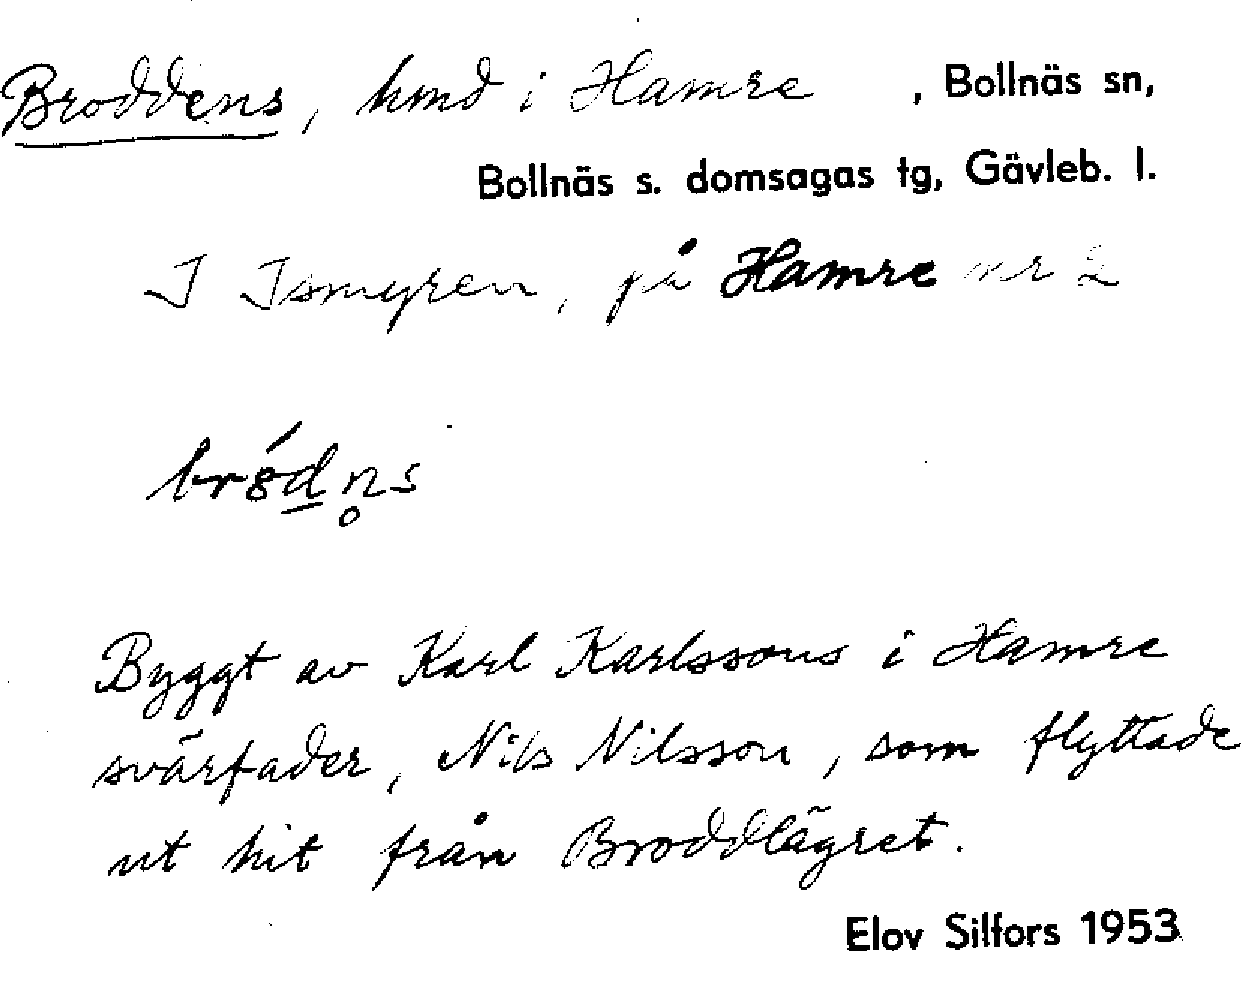 Broddens, hmd i Hamre , Bollnäs sn,
Bollnäs s. domsagas tg, Gävleb. l.
I Ismyren, på Hamre nr 2
bródn̥s
Byggt av Karl Karlssons i Hamre
svärfader, Nils Nilsson, som flyttade
ut hit från Broddlägret.
Elov Silfors 1953